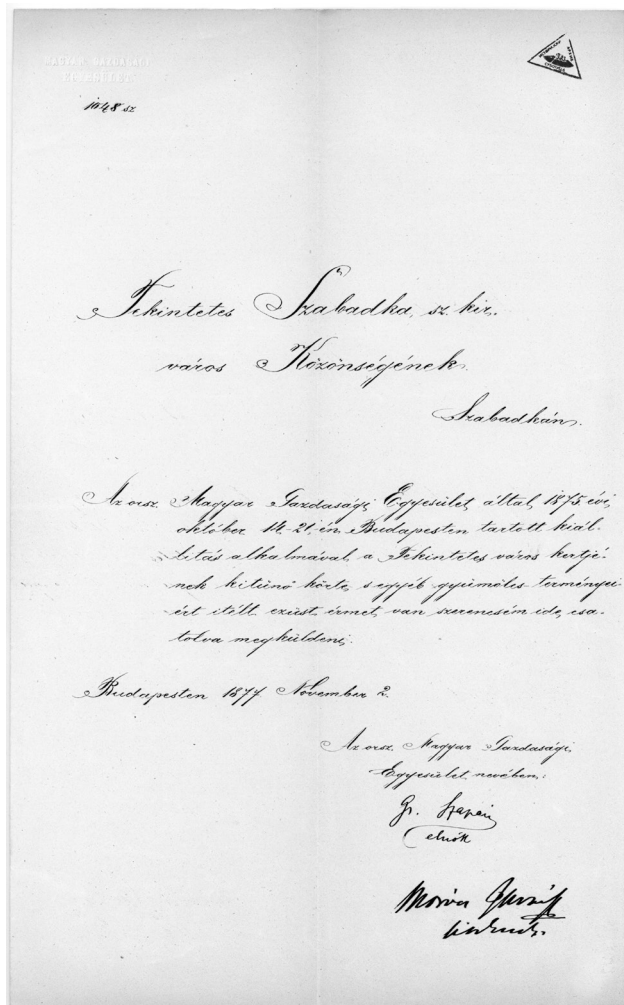 MAGYAR GAZDASÁGI
EGYESÜLET
1048 sz
Tekintetes Szabadka sz. kir.
város Közönségének
Szabadkán.
Az orsz. Magyar Gazdasági Egyesület által 1875. évi
október 14-21. én Budapesten tartott kiál-
litás alkalmával a Tekintetes város kertjé-
nek kitünő körte s egyéb gyümölcs terményei
ért itélt ezüst érmet van szerencsém ide csa-
tolva megküldeni.
Budapesten 1877 November 2.
Az orsz. Magyar Gazdasági
Egyesület nevében:
Gr.
elnök